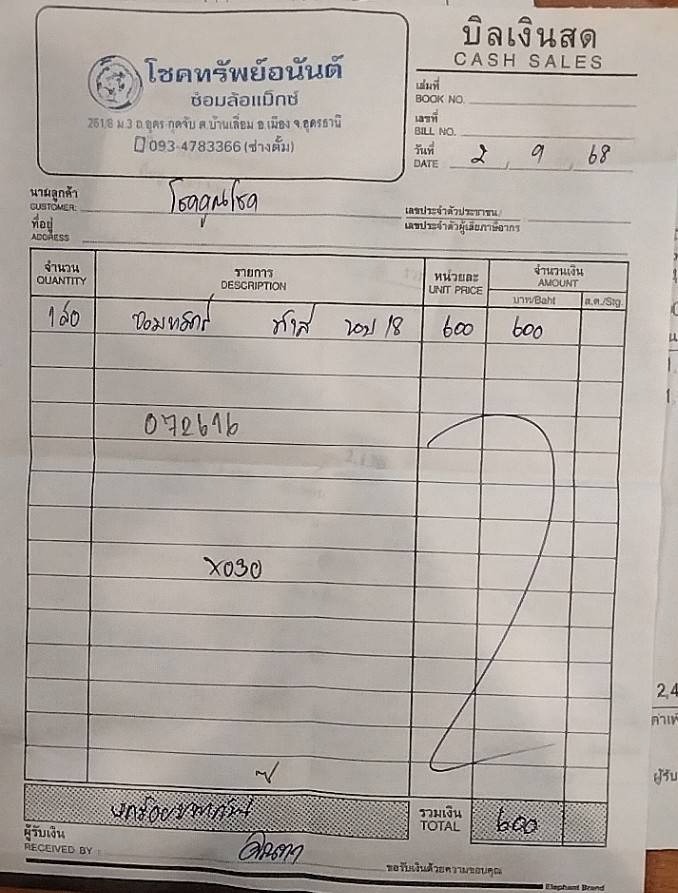 บิลเงินสด
CASH SALES
โชคทรัพย์อนันต์
ซ่อมล้อแม็กซ์
261/8 ม.3 ถ.อุดร-กุดจับ ต.บ้านเลื่อม อ.เมือง จ.อุดรธานี
093-4783366 (ช่างตั้ม)
เล่มที่
BOOK NO.
เลขที่
BILL NO.
วันที่ 2 9 68
DATE
นามลูกค้า โชคคูณโชค
CUSTOMER
ที่อยู่
ADDRESS
เลขประจำตัวประชาชน/
เลขประจำตัวผู้เสียภาษีอากร
จำนวน รายการ หน่วยละ จำนวนเงิน
QUANTITY DESCRIPTION UNIT PRICE AMOUNT
บาท/Baht ส.ต./Stg.
1 ล้อ ขอบ 18 600 600
072616
X030
หกร้อยบาทถ้วน รวมเงิน 600
TOTAL
ผู้รับเงิน
RECEIVED BY
ขอรับเงินด้วยความขอบคุณ
Elephant Brand
2,4